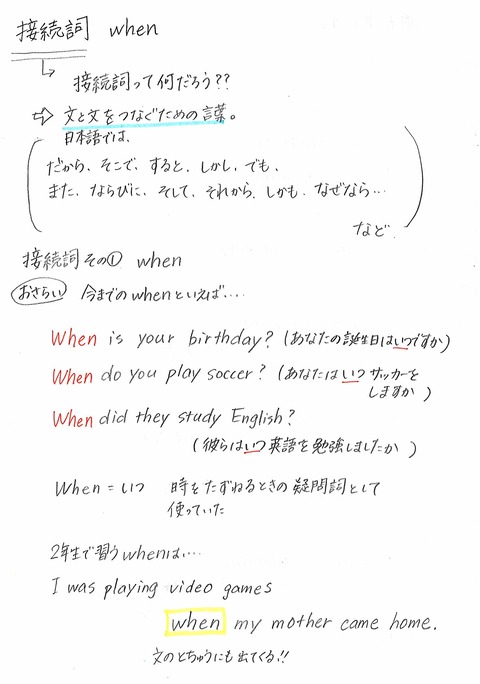 接続詞 when
接続詞って何だろう??
⇨ 文と文をつなぐための言葉。
日本語では、
だから、そこで、すると、しかし、でも、
また、ならびに、そして、それから、しかも、なぜなら…
など
接続詞その① when
おさらい 今までのwhenといえば‥‥
When is your birthday? (あなたの誕生日はいつですか)
When do you play soccer? (あなたはいつサッカーを
しますか)
When did they study English?
(彼らはいつ英語を勉強しましたか)
When = いつ 時をたずねるときの疑問詞として
使っていた
2年生で習うwhenは、…
I was playing video games
when my mother came home.
文のとちゅうにも出てくる!!